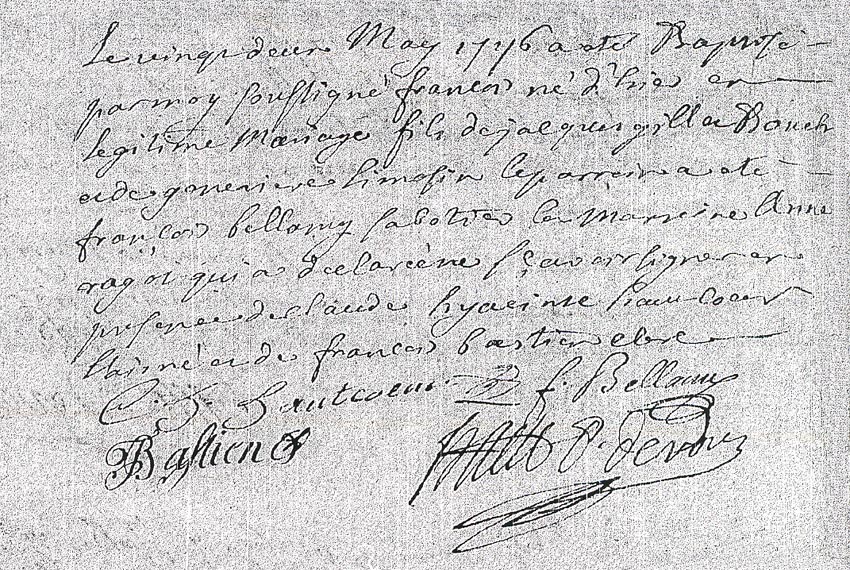 Le vingt deux May 1776 a eté Baptisé
par moy soussigné françois né d'hier en
legitime Mariage fils de jacques gilles Bouch
et de genevieve limosin le parrein a eté
françois bellamy sabotier la Marreine Anne
ragot qui a declaré ne sçavoir signer en
presence de claude hyacinte hautcoeur
laisné et de françois bastien clerc
C. H. hautcoeur f. Bellamy
Bastien
P. de